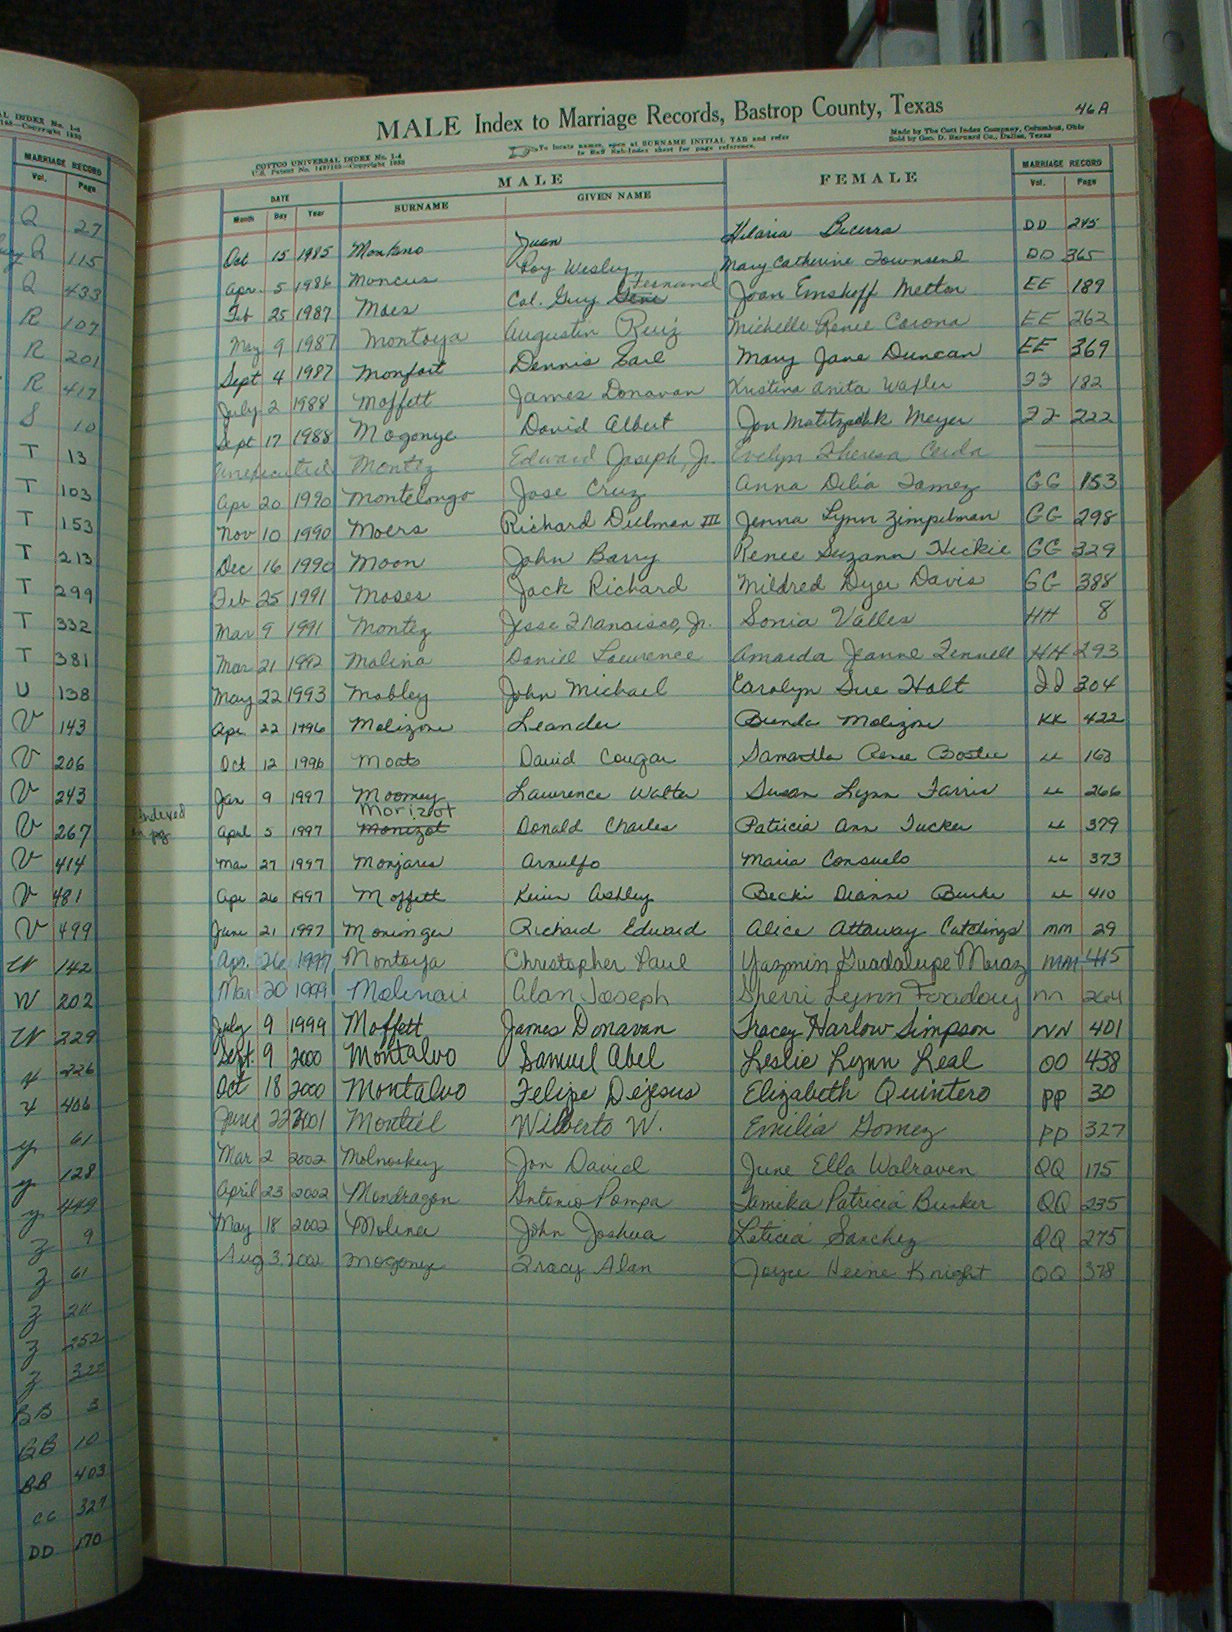 AL INDEX No. 1-4
MARRIAGE RECORD
Vol. Page
Q 27
Q 115
Q 433
R 107
R 201
R 417
S 10
T 13
T 103
T 153
T 213
T 299
T 332
T 381
U 138
V 143
V 206
V 243
V 267
V 414
V 481
V 499
W 142
W 202
W 229
y 226
y 406
y 61
y 128
y 449
z 9
z 61
z 211
z 252
z 322
BB 3
BB 10
BB 403
CC 327
DD 170
46 A
MALE Index to Marriage Records, Bastrop County, Texas
COTTCO UNIVERSAL INDEX No. 1-4
To locate names, open at SURNAME INITIAL TAB and refer
to Buff Sub-Index sheet for page reference.
Made by The Cott Index Company, Columbus, Ohio
Sold by Geo. D. Barnard Co., Dallas, Texas
DATE MALE FEMALE MARRIAGE RECORD
Month Day Year SURNAME GIVEN NAME Vol. Page
Oct 15 1985 Montano Juan Hilaria Becerra DD 245
Apr. 5 1986 Moncus Roy Wesley Mary Catherine Townsend DD 365
Fernand
Feb 25 1987 Moes Col. Guy Gene Joan Emshoff Metton EE 189
May 9 1987 Montoya Augustin Ruiz Michelle Renee Carona EE 262
Sept 4 1987 Monfort Dennis Earl Mary Jane Duncan EE 369
July 2 1988 Moffett James Donavan Kristina Anita Wafler FF 182
Sept 17 1988 Mogonye David Albert Jon Meyer FF 222
unexecuted Montez Edward Joseph, Jr. Evelyn Theresa Cerda
Apr 20 1990 Montelongo Jose Cruz Anna Delia Tamez GG 153
Nov 10 1990 Moers Richard Dielman III Jenna Lynn Zimpelman GG 298
Dec 16 1990 Moon John Barry Renee Suzann Hickie GG 329
Feb 25 1991 Moses Jack Richard Mildred Dyer Davis GG 388
Mar 9 1991 Montez Jesse Francisco, Jr. Sonia Valles HH 8
Mar 21 1992 Molina Daniel Lawrence Amanda Jeanne Fennell HH 293
May 22 1993 Mobley John Michael Carolyn Sue Holt II 304
Apr 22 1996 Molizone Leander Brenda Molizone KK 422
Oct 12 1996 Moats David Cougar Samantha Renee Bostic LL 163
Jan 9 1997 Mooney Lawrence Walter Susan Lynn Farris LL 266
Indexed
on pg
Morizot
April 5 1997 Monizot Donald Charles Patricia Ann Tucker LL 379
Mar 27 1997 Monjares Arnulfo Maria Consuelo LL 373
Apr 26 1997 Moffett Kevin Ashley Becki Dianne Burke LL 410
June 21 1997 Moninger Richard Edward Alice Attaway Catchings MM 29
Apr. 26 1997 Montoya Christopher Paul Yazmin Guadalupe Moraz MM 415
Mar 20 1999 Molinari Alan Joseph Sherri Lynn NN 264
July 9 1999 Moffett James Donavan Tracey Harlow Simpson NN 401
Sept. 9 2000 Montalvo Samuel Abel Leslie Lynn Leal OO 438
Oct 18 2000 Montalvo Felipe Dejesus Elizabeth Quintero PP 30
June 22 2001 Montiel Wilberto W. Emilia Gomez PP 327
Mar 2 2002 Molnoskey Jon David June Ella Walraven QQ 175
April 23 2002 Mondragon Antonio Pompa Tamika Patricia Bunker QQ 235
May 18 2002 Molina John Joshua Leticia Sanchez QQ 275
Aug 3 2002 Mogonye Tracy Alan Joyce Knight QQ 378